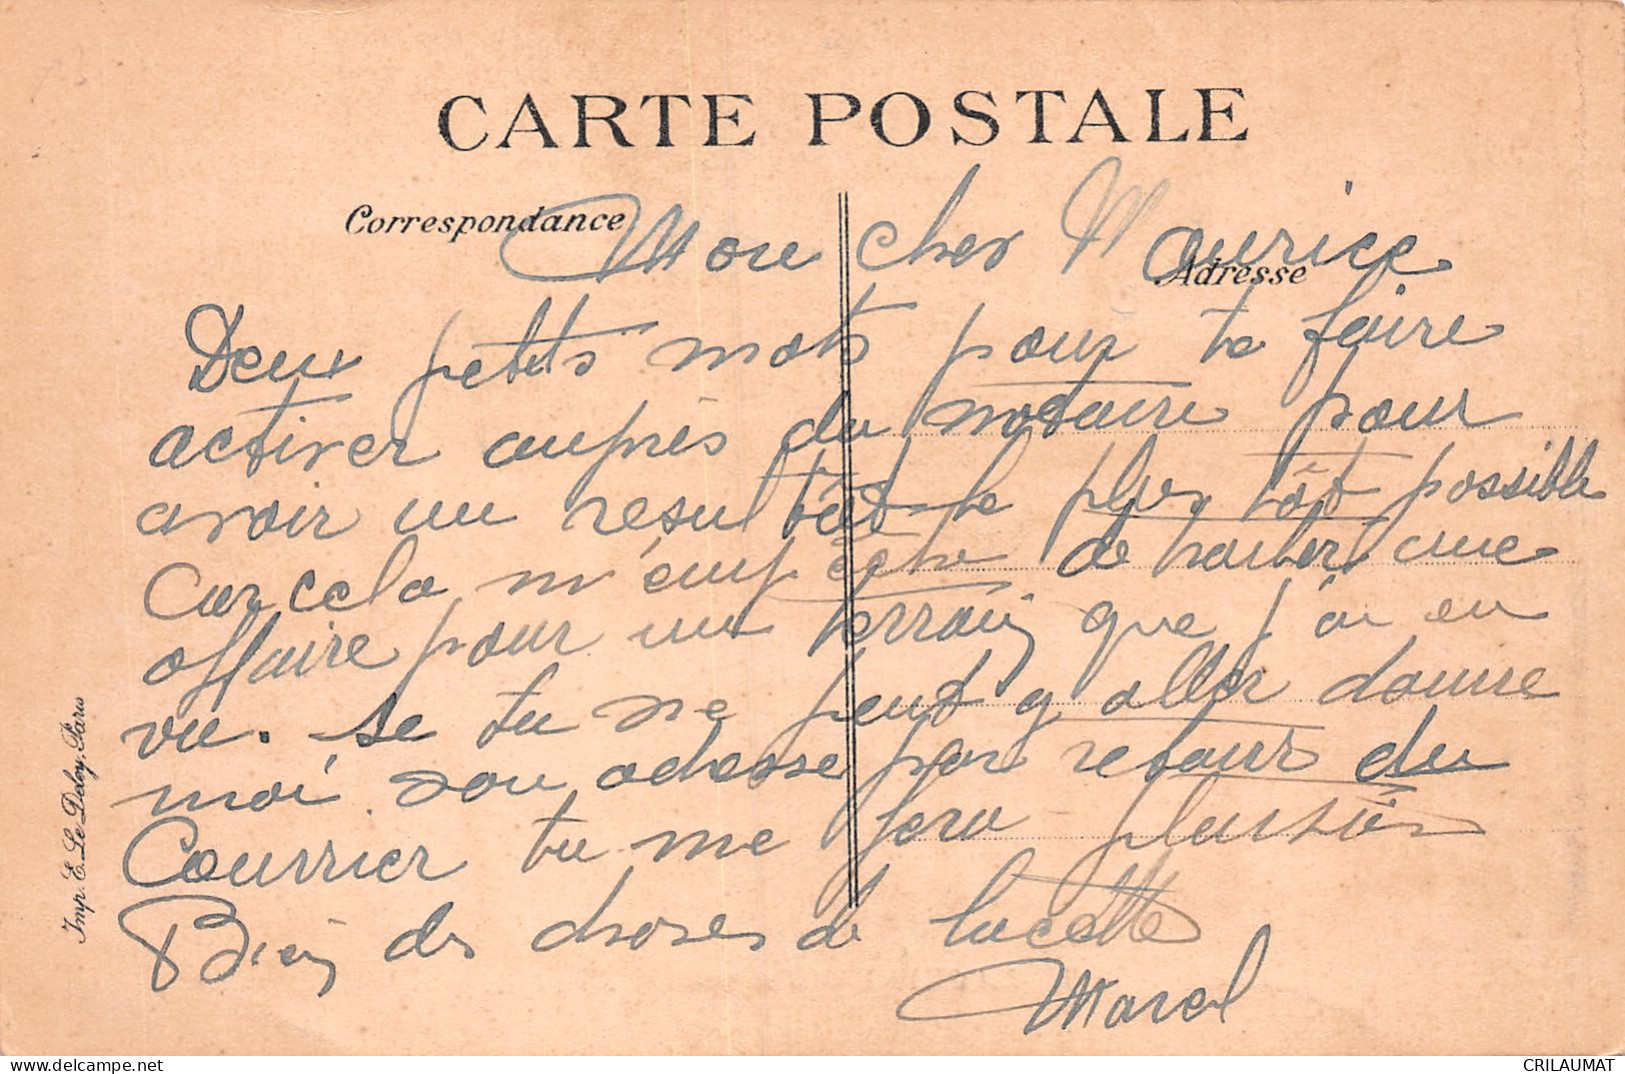 CARTE POSTALE
Correspondance
Adresse
Mon cher Maurice
Deux petits mots pour te faire
activer auprès du notaire pour
avoir un resultat le plus tôt possible
Car cela m'empêche de traiter une
affaire pour un terrain que j'ai en
vu. Se tu ne peut y aller donne
moi son adresse par retour du
Courrier tu me fera plaisir
Bien des choses de Lucette
Marcel
Imp. E. Le Deley, Paris
CRILAUMAT